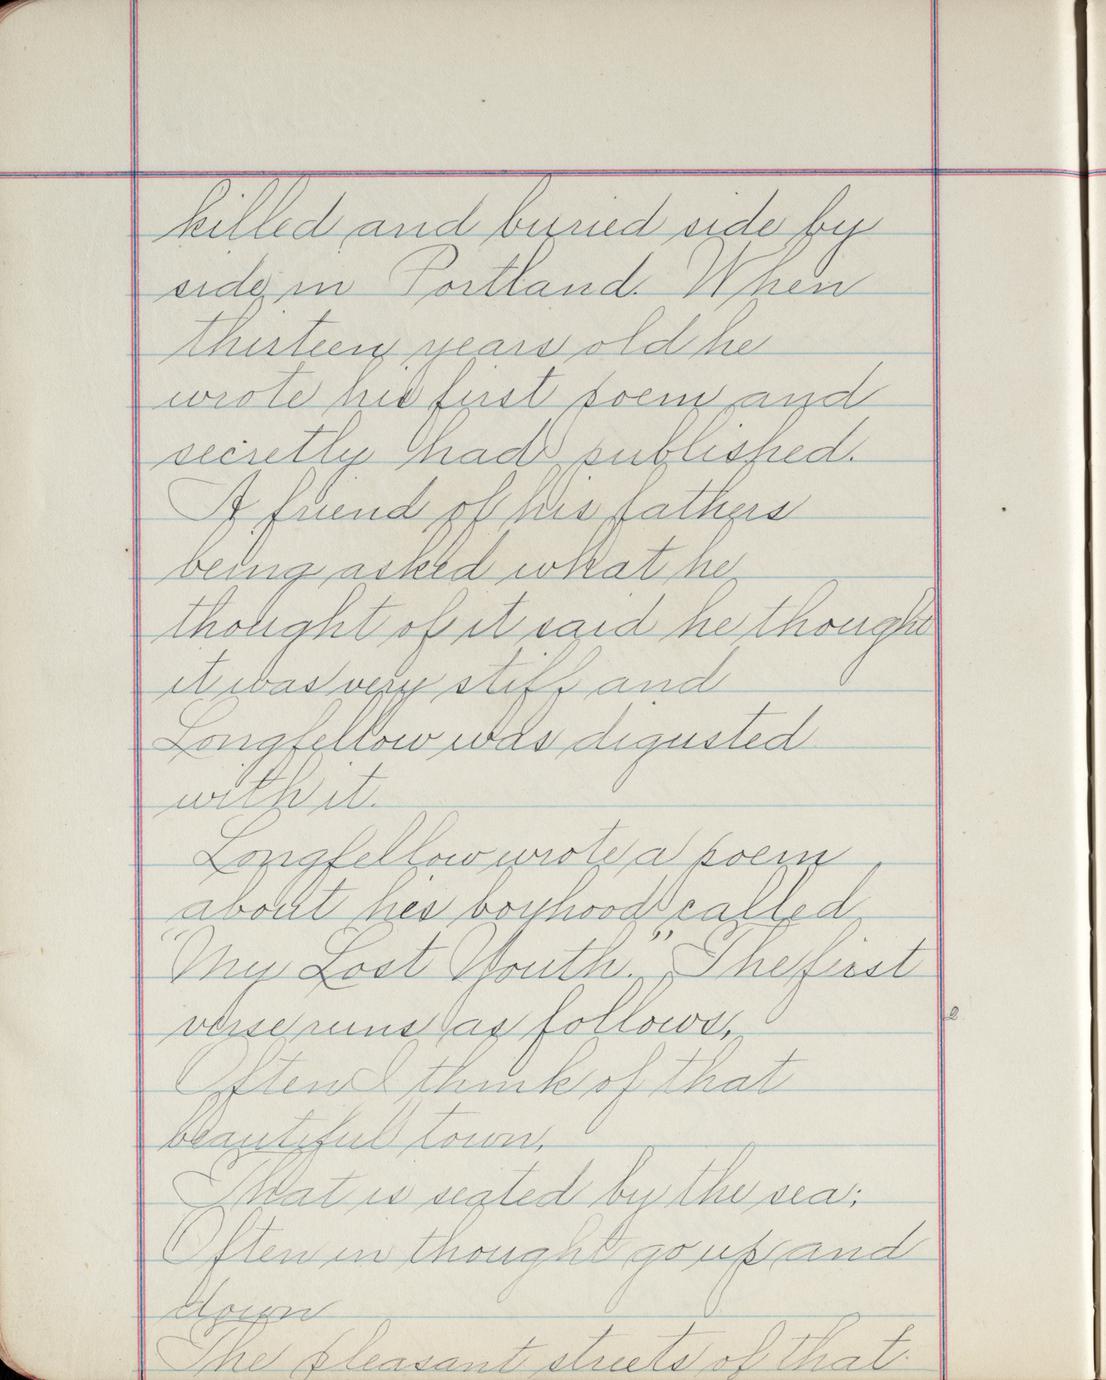 killed and buried side by
side in Portland. When
thirteen years old he
wrote his first poem and
secretly had published.
A friend of his fathers
being asked what he
thought of it said he thought
it was very stiff and
Longfellow was digusted
with it.
Longfellow wrote a poem
about his boyhood called
"My Lost Youth." The first
verse runs as follows,
Often I think of that
beautiful town,
That is seated by the sea;
Often in thought go up and
down
The pleasant streets of that